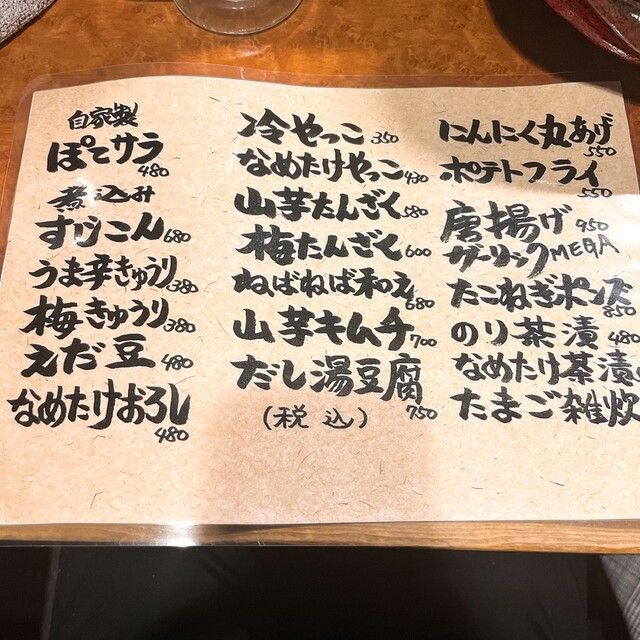 自家製
ぽてサラ 480
煮込み
すじこん 680
うま辛きゅうり 380
梅きゅうり 380
えだ豆 480
なめたけおろし 480
冷やっこ 350
なめたけやっこ 480
山芋たんざく 580
梅たんざく 600
ねばねば和え 680
山芋キムチ 700
だし湯豆腐 750
(税込)
にんにく丸あげ 550
ポテトフライ 550
唐揚げ 950
ガーリックMEGA
たこねぎポンズ 850
のり茶漬 480
なめたけ茶漬
たまご雑炊